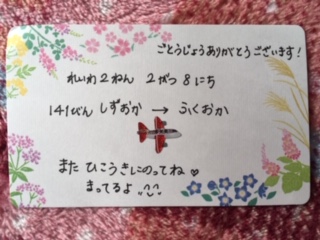 ごとうじょうありがとうございます!
れいわ2ねん 2がつ 8にち
141びん しずおか → ふくおか
また ひこうきにのってね♡
まってるよ ^^